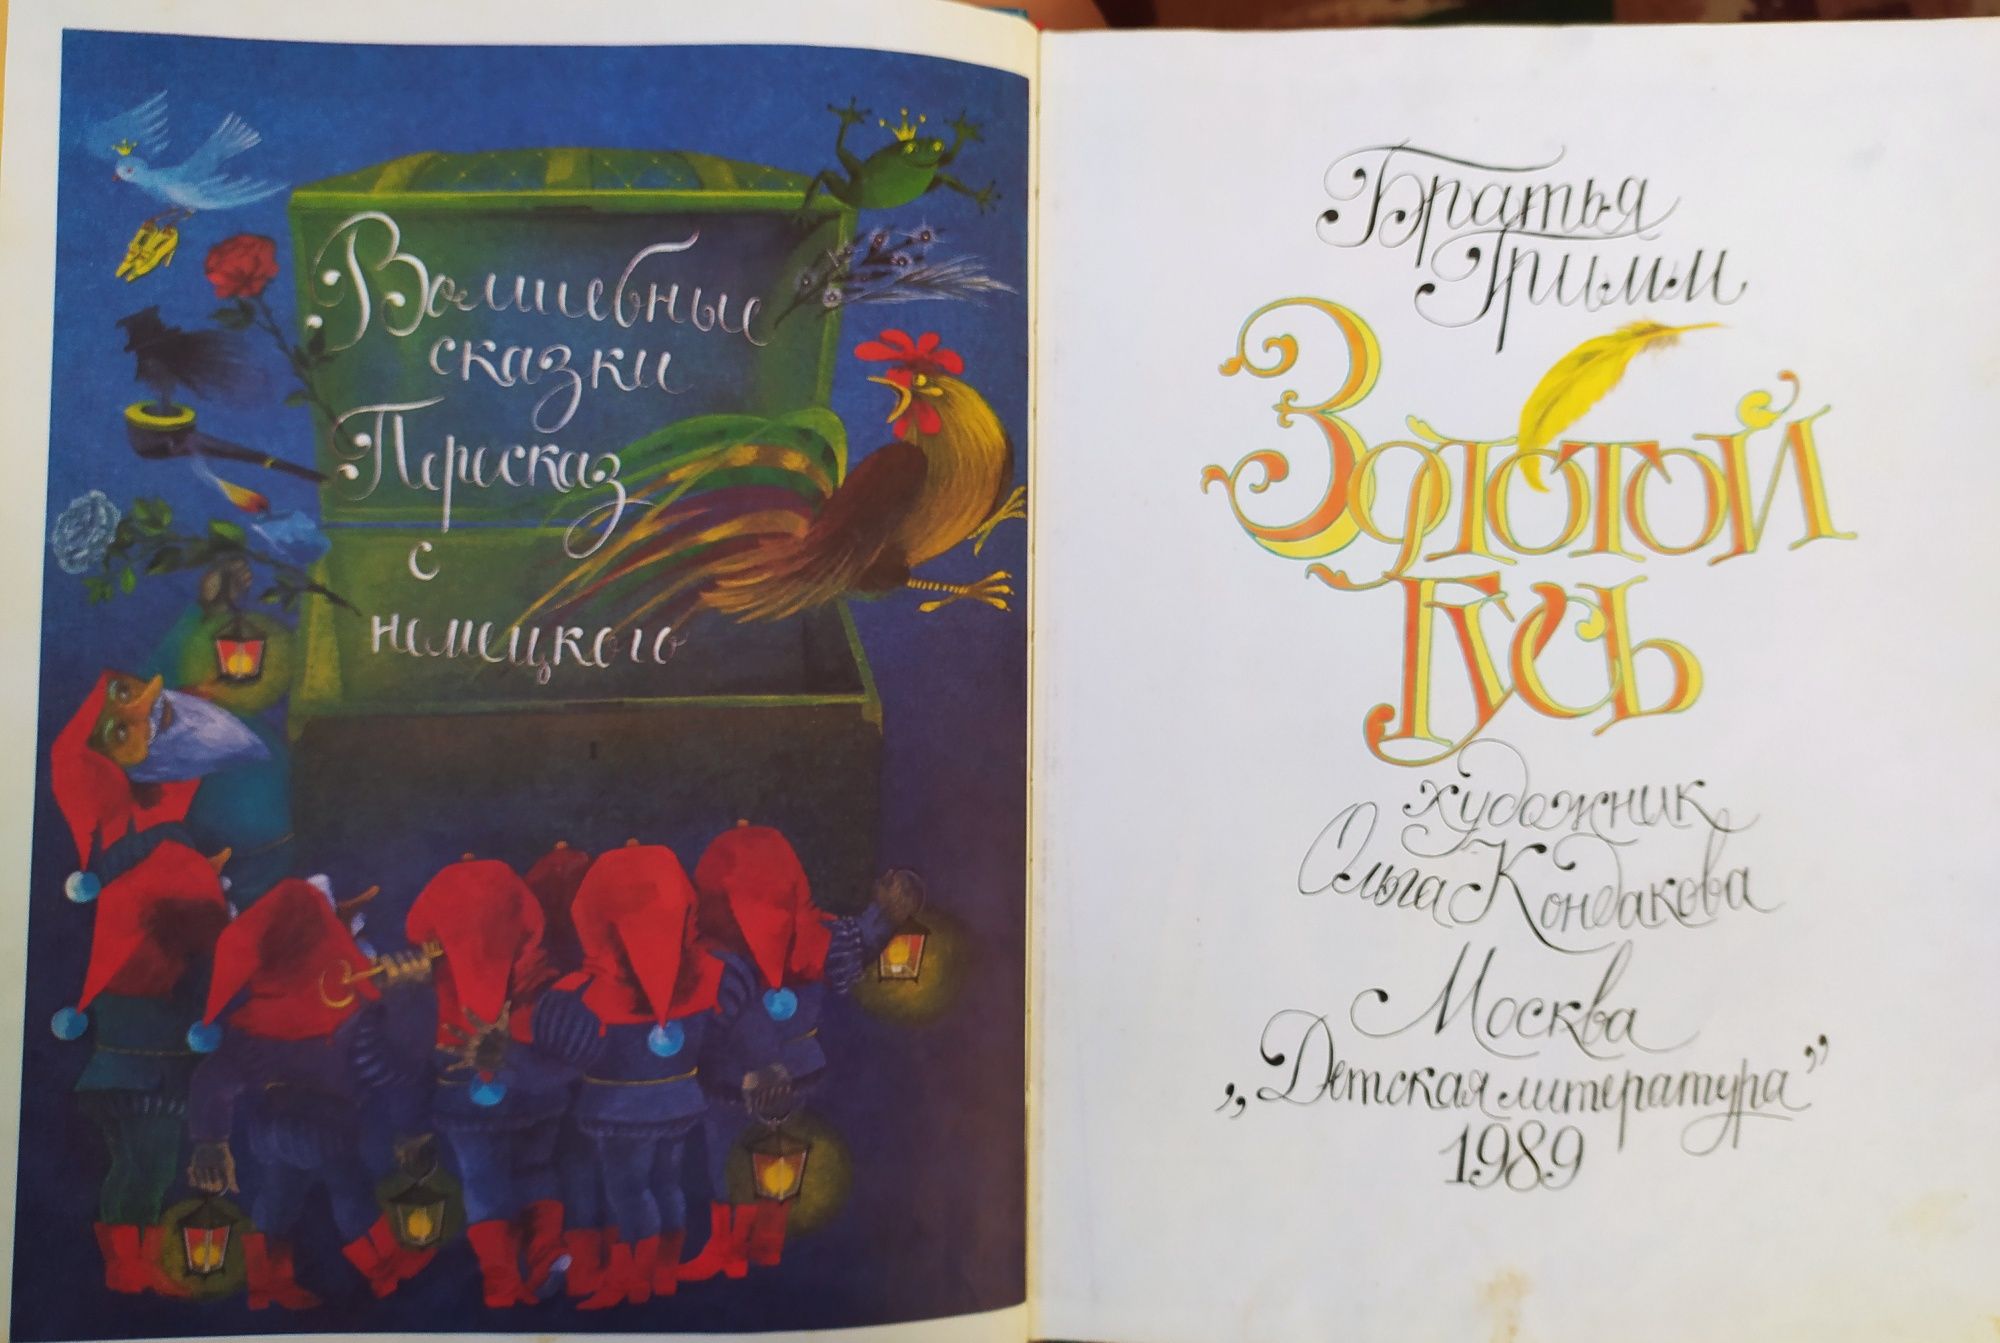 Волшебные
сказки
Пересказ
с
немецкого
Братья
Гримм
Золотой
Гусь
художник
Ольга Кондакова
Москва
„Детская литература”
1989